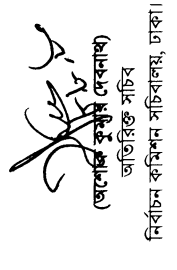 (অশোক কুমার দেবনাথ)
অতিরিক্ত সচিব
নির্বাচন কমিশন সচিবালয়, ঢাকা।